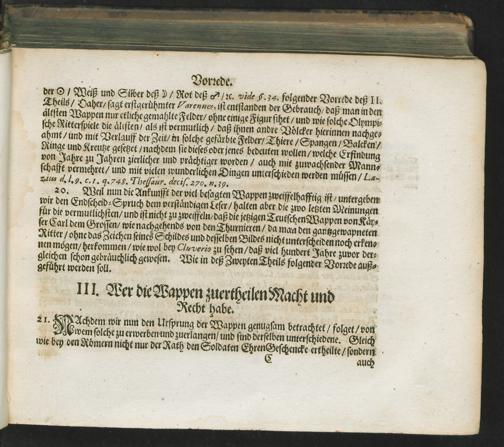 Vorrede.
der ☉/ Weiß und Silber deß ☽/ Rot deß ♂/ ꝛc. vide §. 34. folgender Vorrede deß II.
Theils/ Daher/ sagt erstgerühmter Varennes, ist entstanden der Gebrauch/ daß man in den
ältesten Wappen nur etliche gemahlte Felder/ ohne einige Figur sihet/ und wie solche Olympi-
sche Ritterspiele die ältesten/ als ist vermutlich/ daß ihnen andre Völcker hierinnen nachge-
ahmt/ und mit Verlauff der Zeit/ in solche gefärbte Felder/ Thiere/ Spangen/ Balcken/
Ringe und Kreutze gesetzet/ nachdem sie dieses oder jenes bedeuten wollen/ welche Erfindung
von Jahre zu Jahren zierlicher und prächtiger worden/ auch mit zuwachsender Mann-
schafft vermehret/ und mit vielen wunderlichen Dingen unterschieden werden müssen/ La-
zius d. l. 9. c. 1. q. 748. Thesaur. decis. 270. n. 39.
20. Weil nun die Ankunfft der wol besagten Wappen zweiffelhafftig ist/ untergeben
wir den Endscheid-Spruch dem verständigen Leser/ halten aber die zwo letzten Meinungen
für die vermutlichsten/ und ist nicht zu zweiffeln/ daß die jetzigen Teutschen Wappen von Käy-
ser Carl dem Grossen/ wie nachgehends von den Thurnieren/ da man den gantzgewapneten
Ritter/ ohne das Zeichen seines Schildes und desselben Bildes nicht unterscheiden noch erken-
nen mögen/ herkommen/ wie wol bey Cluverio zu sehen/ daß viel hundert Jahre zuvor der-
gleichen schon gebräuchlich gewesen. Wie in deß Zweyten Theils folgender Vorrede auß-
geführt werden soll.
III. Wer die Wappen zuertheilen Macht und
Recht habe.
21. NAchdem wir nun den Ursprung der Wappen genugsam betrachtet/ folget/ von
wem solche zu erwerben und zuerlangen/ und sind derselben unterschiedene. Gleich
wie bey den Römern nicht nur der Rath den Soldaten EhrenGeschencke ertheilte/ sondern
C auch